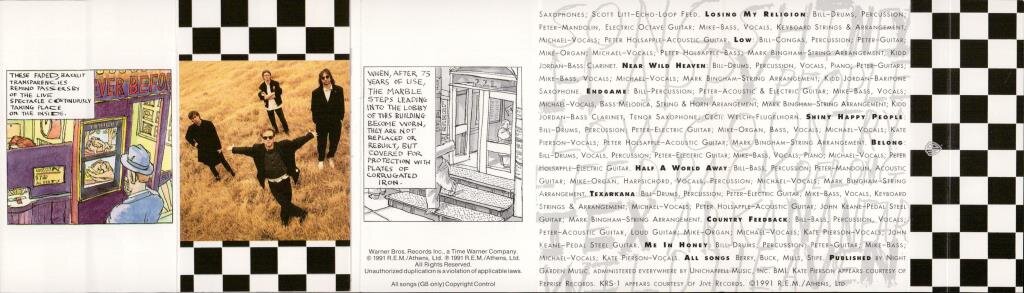 THESE FADED, BACKLIT
TRANSPARENCIES
REMIND PASSERSBY
OF THE LIVE
SPECTACLE CONTINUOUSLY
TAKING PLACE
ON THE INSIDE.
WHEN, AFTER 75
YEARS OF USE,
THE MARBLE
STEPS LEADING
INTO THE LOBBY
OF THIS BUILDING
BECOME WORN,
THEY ARE NOT
REPLACED OR
REBUILT, BUT
COVERED FOR
PROTECTION WITH
PLATES OF
CORRUGATED
IRON.
Warner Bros. Records Inc., a Time Warner Company
© 1991 R.E.M./Athens, Ltd. ℗ 1991 R.E.M./Athens, Ltd.
All Rights Reserved.
Unauthorized duplication is a violation of applicable laws.
All songs (GB only) Copyright Control
Saxophones; Scott Litt–Echo-Loop Feed. Losing My Religion: Bill–Drums, Percussion;
Peter–Mandolin, Electric Octave Guitar; Mike–Bass, Vocals, Keyboard Strings & Arrangement;
Michael–Vocals; Peter Holsapple–Acoustic Guitar. Low: Bill–Congas, Percussion; Peter–Guitar;
Mike–Organ; Michael–Vocals; Peter Holsapple–Bass; Mark Bingham–String Arrangement; Kidd
Jordan–Bass Clarinet. Near Wild Heaven: Bill–Drums, Percussion, Vocals, Piano; Peter–Guitars;
Mike–Bass, Vocals; Michael–Vocals; Mark Bingham–String Arrangement; Kidd Jordan–Baritone
Saxophone. Endgame: Bill–Percussion; Peter–Acoustic & Electric Guitar; Mike–Bass, Vocals;
Michael–Vocals, Bass Melodica, String & Horn Arrangement; Mark Bingham–String Arrangement; Kidd
Jordan–Bass Clarinet, Tenor Saxophone; Cecil Welch–Flugelhorn. Shiny Happy People:
Bill–Drums, Percussion; Peter–Electric Guitar; Mike–Organ, Bass, Vocals; Michael–Vocals; Kate
Pierson–Vocals; Peter Holsapple–Acoustic Guitar; Mark Bingham–String Arrangement. Belong:
Bill–Drums, Vocals, Percussion; Peter–Electric Guitar; Mike–Bass, Vocals, Piano; Michael–Vocals; Peter
Holsapple–Electric Guitar. Half A World Away: Bill–Bass, Percussion; Peter–Mandolin, Acoustic
Guitar; Mike–Organ, Harpsichord, Vocals, Percussion; Michael–Vocals; Mark Bingham–String
Arrangement. Texarkana: Bill–Drums, Percussion; Peter–Electric Guitar; Mike–Bass, Vocals, Keyboard
Strings & Arrangement; Michael–Vocals; Peter Holsapple–Acoustic Guitar; John Keane–Pedal Steel
Guitar; Mark Bingham–String Arrangement. Country Feedback: Bill–Bass, Percussion, Vocals;
Peter–Acoustic Guitar, Loud Guitar; Mike–Organ; Michael–Vocals; Kate Pierson–Vocals; John
Keane–Pedal Steel Guitar. Me In Honey: Bill–Drums, Percussion; Peter–Guitar; Mike–Bass;
Michael–Vocals; Kate Pierson–Vocals. All songs Berry, Buck, Mills, Stipe. Published by Night
Garden Music, administered everywhere by Unichappell Music, Inc. BMI. Kate Pierson appears courtesy of
Reprise Records. KRS-1 appears courtesy of Jive Records. ©1991 R.E.M./Athens, Ltd.